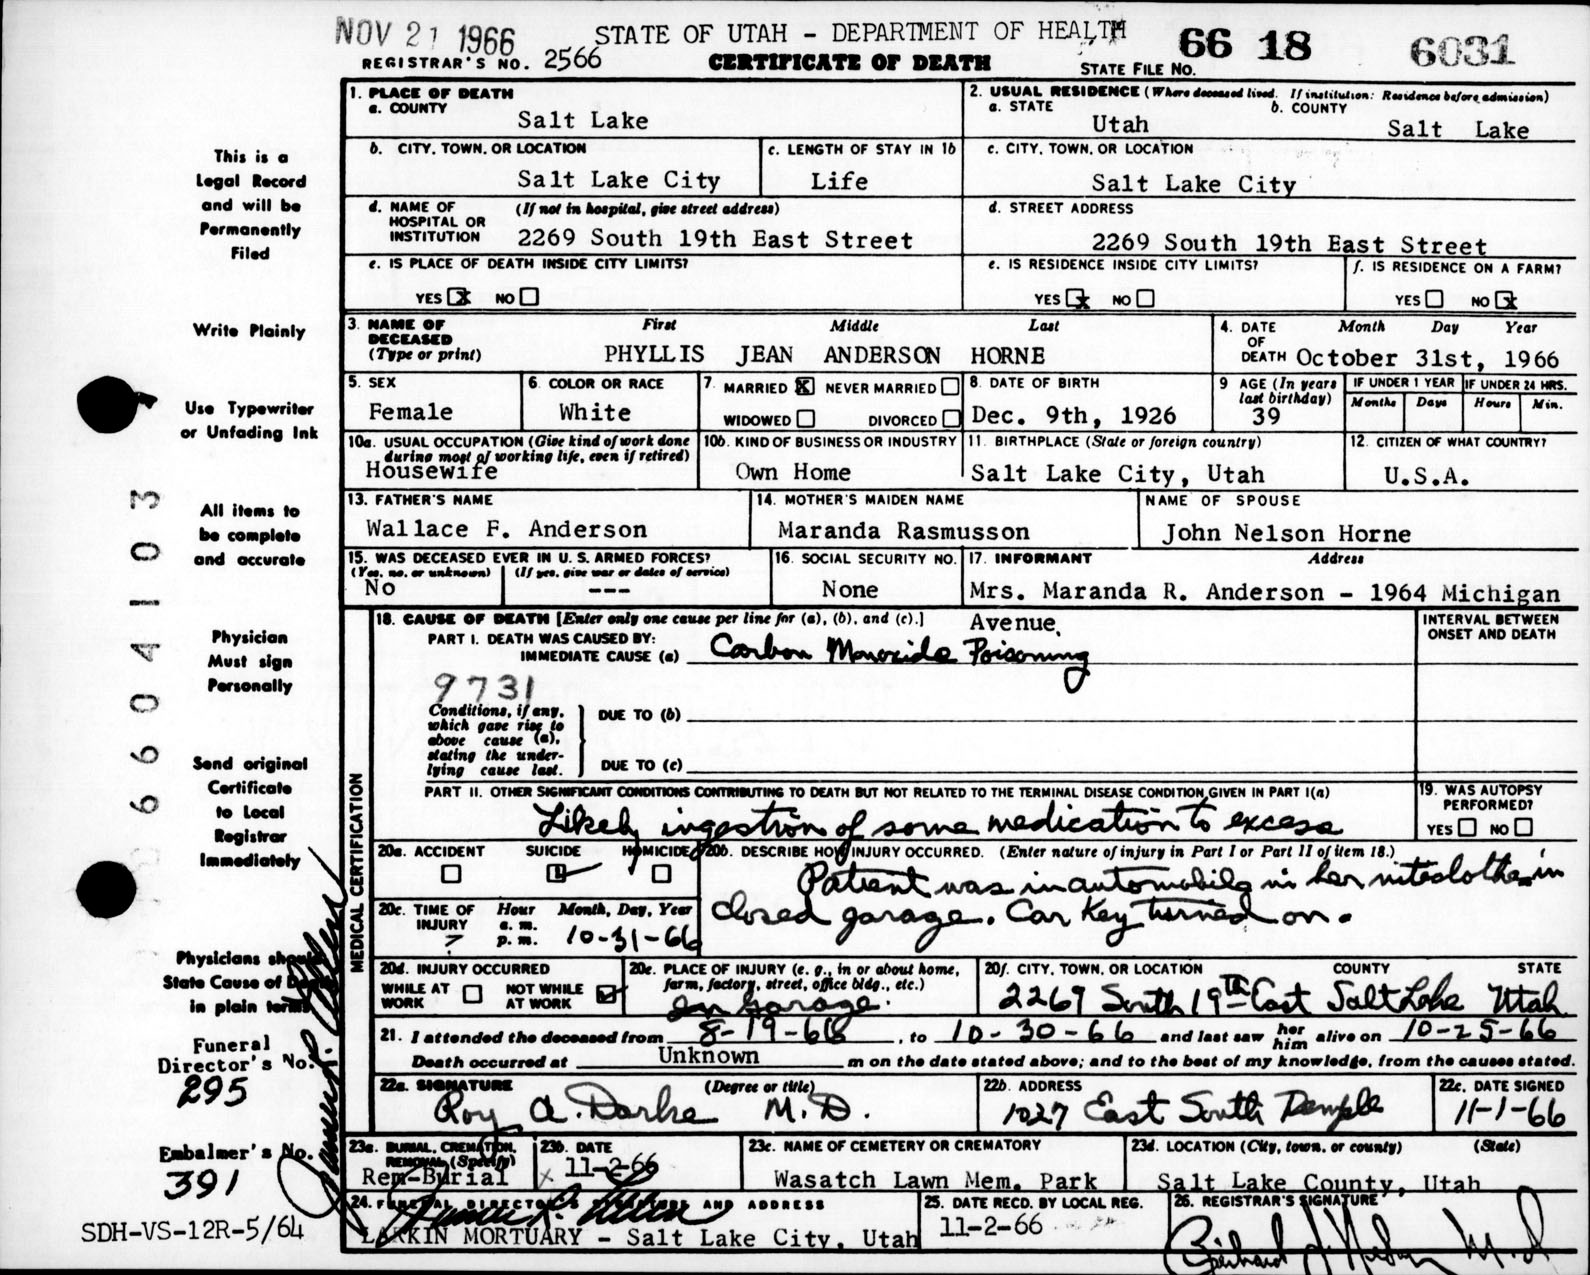 NOV 21 1966
STATE OF UTAH - DEPARTMENT OF HEALTH
66 18 6031
REGISTRAR'S NO. 2566
CERTIFICATE OF DEATH
STATE FILE NO.
This is a
Legal Record
and will be
Permanently
Filed
Write Plainly
Use Typewriter
or Unfading Ink
All items to
be complete
and accurate
Physician
Must sign
Personally
Send original
Certificate
to Local
Registrar
Immediately
Physicians should
State Cause of Death
in plain terms
Funeral
Director's No.
295
Embalmer's No.
391
SDH-VS-12R-5/64
6604103
1. PLACE OF DEATH
a. COUNTY
Salt Lake
2. USUAL RESIDENCE (Where deceased lived. If institution: Residence before admission)
a. STATE
Utah
b. COUNTY
Salt Lake
b. CITY, TOWN, OR LOCATION
Salt Lake City
c. LENGTH OF STAY IN 1b
Life
c. CITY, TOWN, OR LOCATION
Salt Lake City
d. NAME OF HOSPITAL OR INSTITUTION
(If not in hospital, give street address)
2269 South 19th East Street
d. STREET ADDRESS
2269 South 19th East Street
e. IS PLACE OF DEATH INSIDE CITY LIMITS?
YES x NO
e. IS RESIDENCE INSIDE CITY LIMITS?
YES x NO
f. IS RESIDENCE ON A FARM?
YES NO x
3. NAME OF DECEASED
(Type or print)
First Middle Last
PHYLLIS JEAN ANDERSON HORNE
4. DATE OF DEATH
Month Day Year
October 31st, 1966
5. SEX
Female
6. COLOR OR RACE
White
7. MARRIED X NEVER MARRIED
WIDOWED DIVORCED
8. DATE OF BIRTH
Dec. 9th, 1926
9 AGE (In years last birthday)
39
IF UNDER 1 YEAR
Months Days
IF UNDER 24 HRS.
Hours Min.
10a. USUAL OCCUPATION (Give kind of work done
during most of working life, even if retired)
Housewife
10b. KIND OF BUSINESS OR INDUSTRY
Own Home
11. BIRTHPLACE (State or foreign country)
Salt Lake City, Utah
12. CITIZEN OF WHAT COUNTRY?
U.S.A.
13. FATHER'S NAME
Wallace F. Anderson
14. MOTHER'S MAIDEN NAME
Maranda Rasmusson
NAME OF SPOUSE
John Nelson Horne
15. WAS DECEASED EVER IN U. S. ARMED FORCES?
(Yes, no, or unknown) (If yes, give war or dates of service)
No ---
16. SOCIAL SECURITY NO.
None
17. INFORMANT Address
Mrs. Maranda R. Anderson - 1964 Michigan
Avenue.
MEDICAL CERTIFICATION
18. CAUSE OF DEATH [Enter only one cause per line for (a), (b), and (c).]
PART I. DEATH WAS CAUSED BY:
IMMEDIATE CAUSE (a) Carbon Monoxide Poisoning
INTERVAL BETWEEN
ONSET AND DEATH
9731
Conditions, if any,
which gave rise to
above cause (a),
stating the under-
lying cause last.
DUE TO (b)
DUE TO (c)
PART II. OTHER SIGNIFICANT CONDITIONS CONTRIBUTING TO DEATH BUT NOT RELATED TO THE TERMINAL DISEASE CONDITION GIVEN IN PART I(a)
Likely ingestion of some medication to excess
19. WAS AUTOPSY
PERFORMED?
YES NO
20a. ACCIDENT SUICIDE HOMICIDE
20b. DESCRIBE HOW INJURY OCCURRED. (Enter nature of injury in Part I or Part II of item 18.)
Patient was in automobile in her niteclothes in
closed garage. Car key turned on.
20c. TIME OF INJURY
Hour Month, Day, Year
a. m.
p. m.
? 10-31-66
20d. INJURY OCCURRED
WHILE AT WORK NOT WHILE AT WORK
20e. PLACE OF INJURY (e. g., in or about home,
farm, factory, street, office bldg., etc.)
In Garage.
20f. CITY, TOWN, OR LOCATION COUNTY STATE
2269 South 19th East Salt Lake Utah
21. I attended the deceased from 8-19-66, to 10-30-66 and last saw her him alive on 10-25-66
Death occurred at Unknown m on the date stated above; and to the best of my knowledge, from the causes stated.
22a. SIGNATURE (Degree or title)
Roy A. Darke M.D.
22b. ADDRESS
1027 East South Temple
22c. DATE SIGNED
11-1-66
23a. BURIAL, CREMATION,
REMOVAL (Specify)
Rem-Burial
23b. DATE
x 11-2-66
23c. NAME OF CEMETERY OR CREMATORY
Wasatch Lawn Mem. Park
23d. LOCATION (City, town, or county) (State)
Salt Lake County, Utah
24. FUNERAL DIRECTOR'S SIGNATURE AND ADDRESS
LARKIN MORTUARY - Salt Lake City, Utah
25. DATE RECD. BY LOCAL REG.
11-2-66
26. REGISTRAR'S SIGNATURE